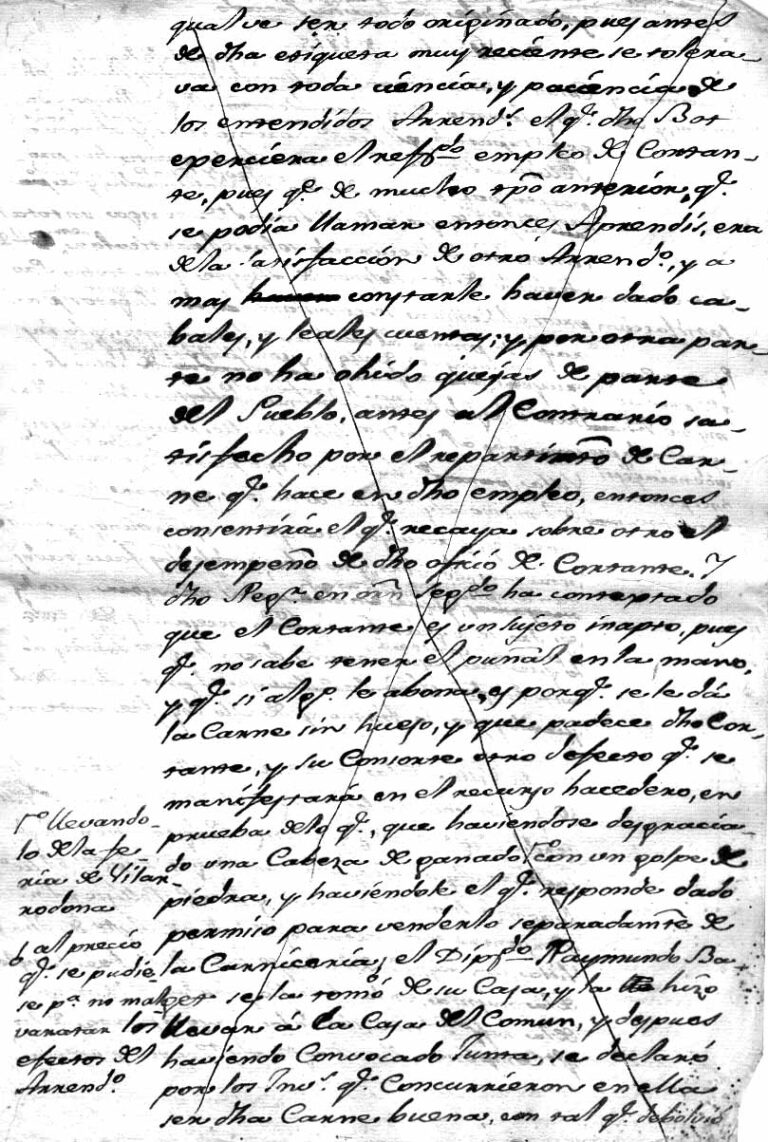 qual ve ser todo originado, pues antes
de dha etiqueta muy reciente se tolera-
va con toda ciencia, y paciencia de
los entendidos Arrend.s el q.e dho Bot
exerciera el refp.do empleo de Cortan-
te, pues q.e de mucho tpõ anterior, q.e
se podia llamar entonces Aprendis, era
de la satisfacción de otro Arrend.o, y a
mas constarle haver dado ca-
bales, y leales cuentas; y por otra par-
te no ha ohido quejas de parte
del Pueblo, antes al Contrario sa-
tisfecho por el repartimtõ de Car-
ne q.e hace en dho empleo, entonces
consentirá el q.e recaya sobre otro el
desempeño de dho oficio de Cortante. Y
dho Reg.r en orñ seg.do ha contextado
que el Cortante es un sujeto inapto, pues
q.e no sabe tener el puñal en la mano,
y q.e si alg.o le abona, es porq.e se le dá
la Carne sin hueso, y que padece dho Cor-
tante, y su Consorte otro defecto q.e se
manifestará en el recurso hacedero, en
prueba de lo q.e, que haviendose desgracia-
do una Cabeza de ganado con un golpe de
piedra, y haviéndole el q.e responde dado
permiso para venderlo separadamte de
la Carniceria, el Dip.do Raymundo Ba-
get se la tomó de su Casa, y la hizo
llevar á la Casa del Comun, y despues
haviendo Convocado Junta, se declaró
por los Indiv.s q.e Concurrieron en ella
ser dha Carne buena, con tal q.e debolvió
llevando-
lo de la fe-
ria de Vilar-
rodona
al precio
q.e se pudie-
se p.a no mal
varatar los
efectos del
Arrend.o